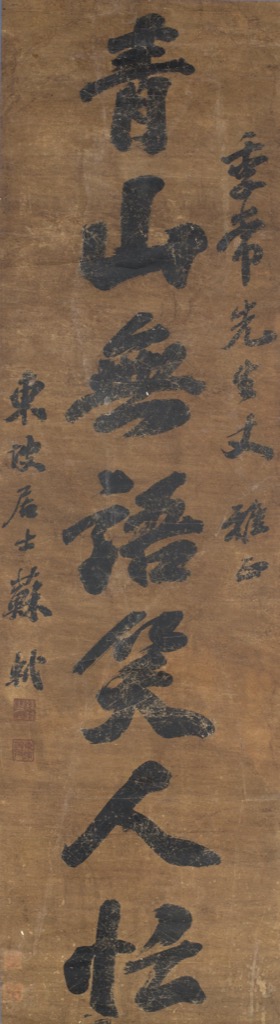 季常先生丈雅正
青山無語笑人忙
東坡居士蘇軾